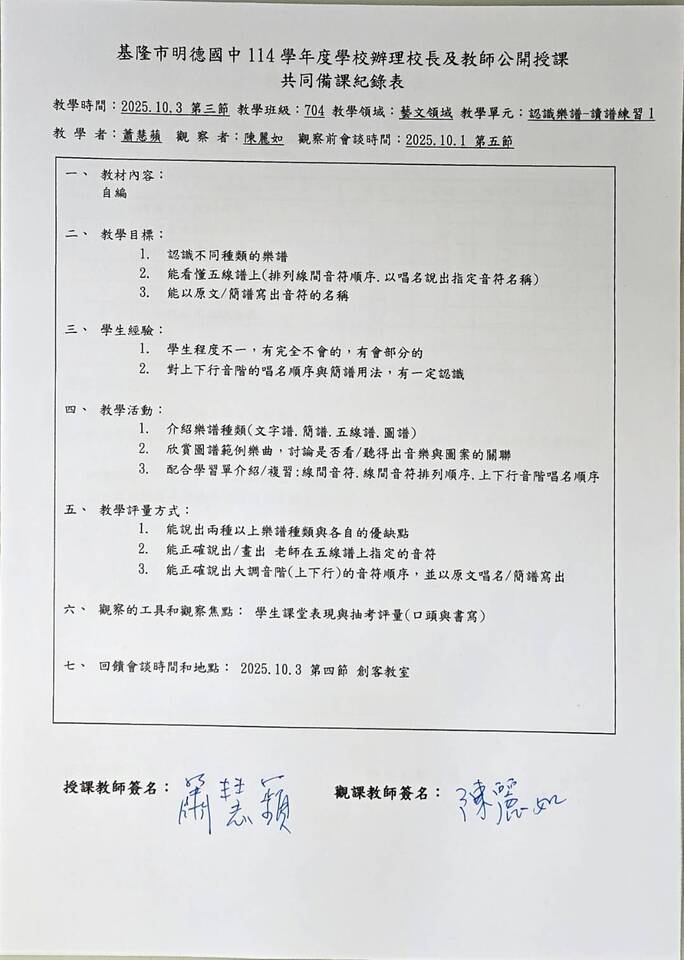 基隆市明德國中 114 學年度學校辦理校長及教師公開授課
共同備課紀錄表
教學時間：2025.10.3 第三節 教學班級：704 教學領域：藝文領域 教學單元：認識樂譜-讀譜練習 1
教 學 者：蕭慧蘋 觀 察 者：陳麗如 觀察前會談時間：2025.10.1 第五節
一、 教材內容：
自編
二、 教學目標：
1. 認識不同種類的樂譜
2. 能看懂五線譜上(排列線間音符順序.以唱名說出指定音符名稱)
3. 能以原文/簡譜寫出音符的名稱
三、 學生經驗：
1. 學生程度不一，有完全不會的，有會部分的
2. 對上下行音階的唱名順序與簡譜用法，有一定認識
四、 教學活動：
1. 介紹樂譜種類(文字譜.簡譜.五線譜.圖譜)
2. 欣賞圖譜範例樂曲，討論是否看/聽得出音樂與圖案的關聯
3. 配合學習單介紹/複習:線間音符.線間音符排列順序.上下行音階唱名順序
五、 教學評量方式：
1. 能說出兩種以上樂譜種類與各自的優缺點
2. 能正確說出/畫出 老師在五線譜上指定的音符
3. 能正確說出大調音階(上下行)的音符順序，並以原文唱名/簡譜寫出
六、 觀察的工具和觀察焦點： 學生課堂表現與抽考評量(口頭與書寫)
七、 回饋會談時間和地點： 2025.10.3 第四節 創客教室
授課教師簽名：蕭慧蘋 觀課教師簽名：陳麗如